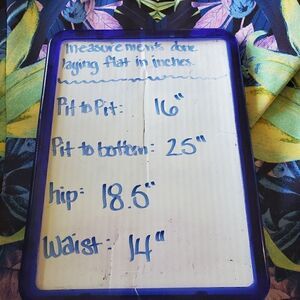 measurements done
laying flat in inches.
Pit to Pit: 16"
Pit to bottom: 25"
hip: 18.5"
Waist: 14"